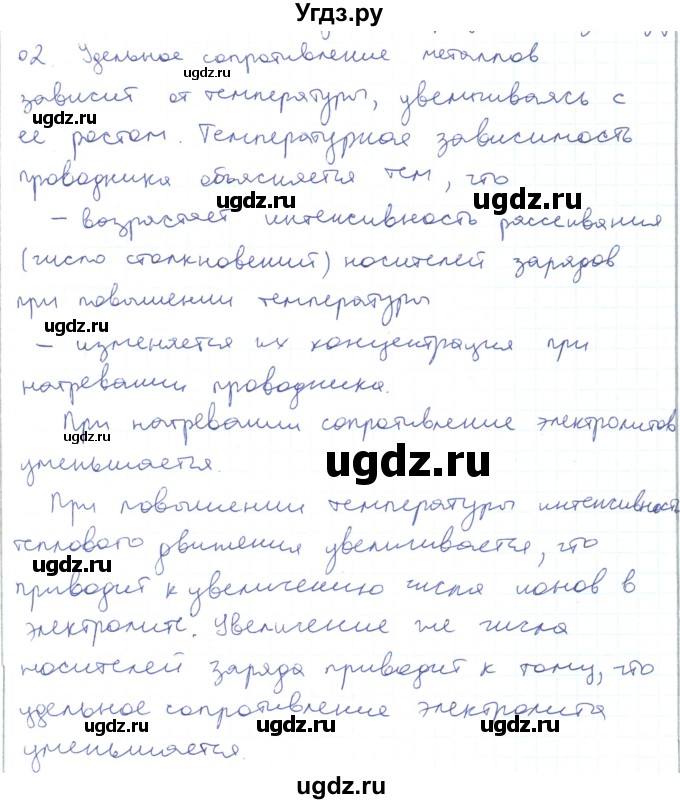 Угдз.ру
02. Удельное сопротивление металлов
ugdz.ru
зависит от температуры, увеличиваясь с
ugdz.ru
ее ростом. Температурная зависимость
проводника объясняется тем, что
ugdz.ru
ugdz.ru
– возрастает интенсивность рассеивания
(число столкновений) носителей зарядов
при повышении температуры
ugdz.ru
– изменяется их концентрация при
нагревании проводника.
При нагревании сопротивление электролитов
ugdz.ru
уменьшается.
ugdz.ru
При повышении температуры интенсивность
теплового движения увеличивается, что
ugdz.ru
приводит к увеличению числа ионов в
электролите. Увеличение же числа
носителей заряда приводит к тому, что
удельное сопротивление электролита
ugdz.ru
ugdz.ru
ugdz.ru
уменьшается.
ugdz.ru